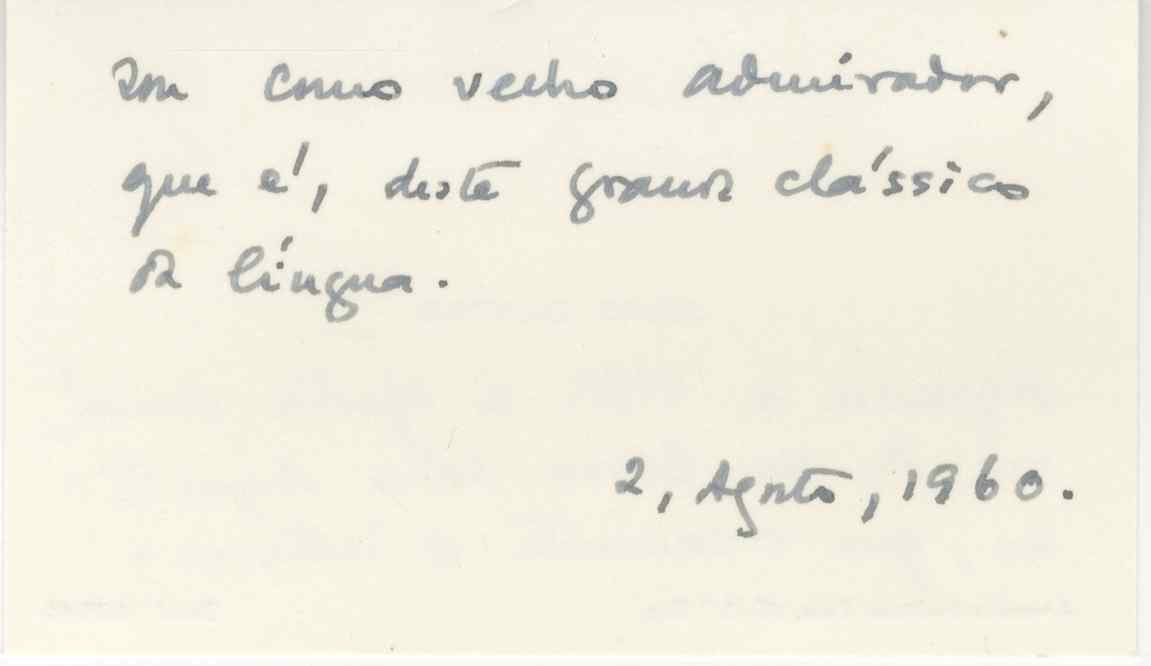 como velho admirador,
que é, deste grande clássico
da língua.
2, Agosto, 1960.